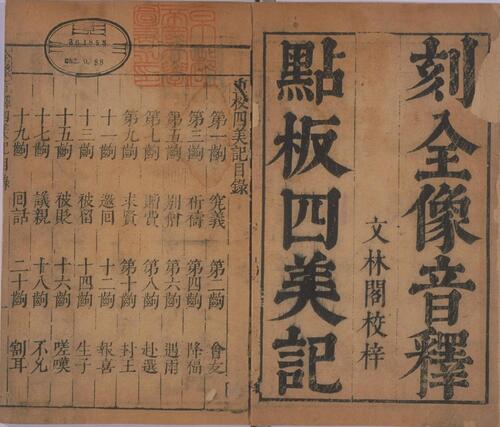 刻全像音釋
文林閣校梓
點板四美記
重校四美記目錄
第一齣 究義 第二齣 會友
第三齣 祈禱 第四齣 降福
第五齣 別僧 第六齣 遇雨
第七齣 贈費 第八齣 赴選
第九齣 求賢 第十齣 封王
十一齣 邀回 十二齣 報喜
十三齣 被留 十四齣 生子
十五齣 十六齣 嗟嘆
十七齣 議親 十八齣 不允
十九齣 回話 二十齣 割耳
四美記目錄